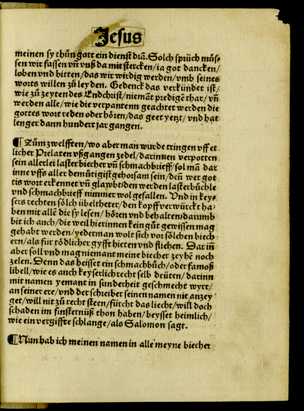 Jesus
meinen sy thůn gott ein dienst diā. Solch sprüch můs-
sen wir fassen vn̄ vnß da mit stercken/ ia got dancken/
loben vnd bitten/ das wir wirdig werden/ vmb seines
worts willen zů leyden. Gedenck das verkindet ist/
wie zů zeyten des Endchrist/ niemāt predigē thar/ vn̄
werden alle/ wie die verpanten geachtet werden die
gottes wort reden oder hörē/ das geet yetzt/ vnd hat
lenger dann hundert jar gangen.
¶ Zům zwelfften/ wo aber man wurde tringen vff et
licher Prelaten vßgangen zedel/ darinnen verpotten
sein allerlei lasterbiecher vn̄ schmachbrieff/ sol mā dar
inne vffs aller demütigist gehorsam sein/ deñ wer got
tis wort erkennet vn̄ glaubt/ den werden lasterbůchle
vnd schmachbrieff nimmer wol gefallen. Vnd in key-
sers rechten sölch übelthetter/ den kopff verwürckt ha-
ben mit allē die sy lesen/ hörten vnd behalten/ darumb
bit ich auch/ die weil hierinnen kein gůt gewissen mag
gehabt werden/ yederman wolt sich vor sölchen biech-
ern/ als für rödlicher gyfft hietten vnd fliehen. Dar in̄
aber soll vnd mag niemant meine biecher zeyhē noch
zelen. Denn das heisset ein schmachbůch/ oder famoß
libell/ wie es auch keyserlich recht selb deuten/ darinn
mit namen yemant in sunderheit geschmecht wyrt/
an seiner ere/ vnd der schreiber seinen namen nit anzey
get/ will nit zů recht steen/ fürcht das liecht/ will doch
schaden im finsternüß thon haben/ beysset heimlich/
wie ein vergiffte schlange/ als Salomon sagt.
¶ Nun hab ich meinen namen in alle meyne biecher